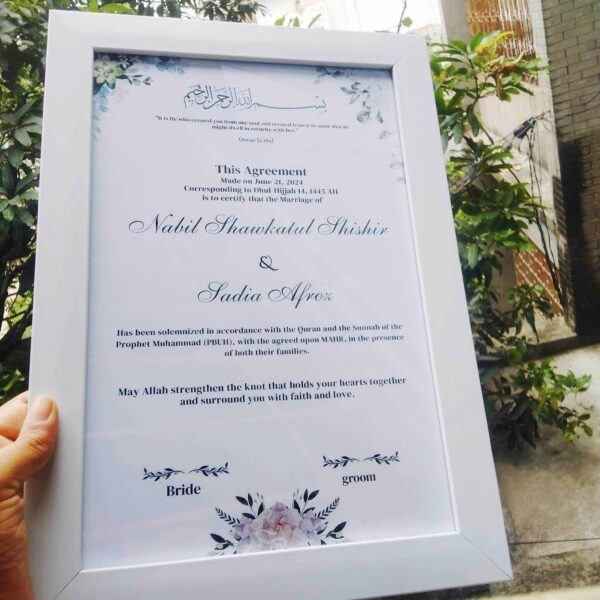 بسم الله الرحمن الرحيم
"It is He who created you from one soul and created from it its mate that he
might dwell in security with her."
Quran [7:189]
This Agreement
Made on June 21, 2024
Corresponding to Dhul-Hijjah 14, 1445 AH
is to certify that the Marriage of
Nabil Shawkatul Shishir
&
Sadia Afroz
Has been solemnized in accordance with the Quran and the Sunnah of the
Prophet Muhammad (PBUH), with the agreed upon MAHR, in the presence
of both their families.
May Allah strengthen the knot that holds your hearts together
and surround you with faith and love.
Bride
groom